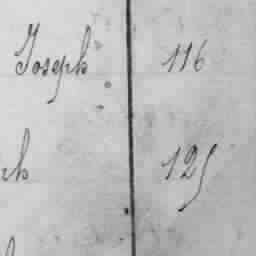 Joseph 116
ch 125